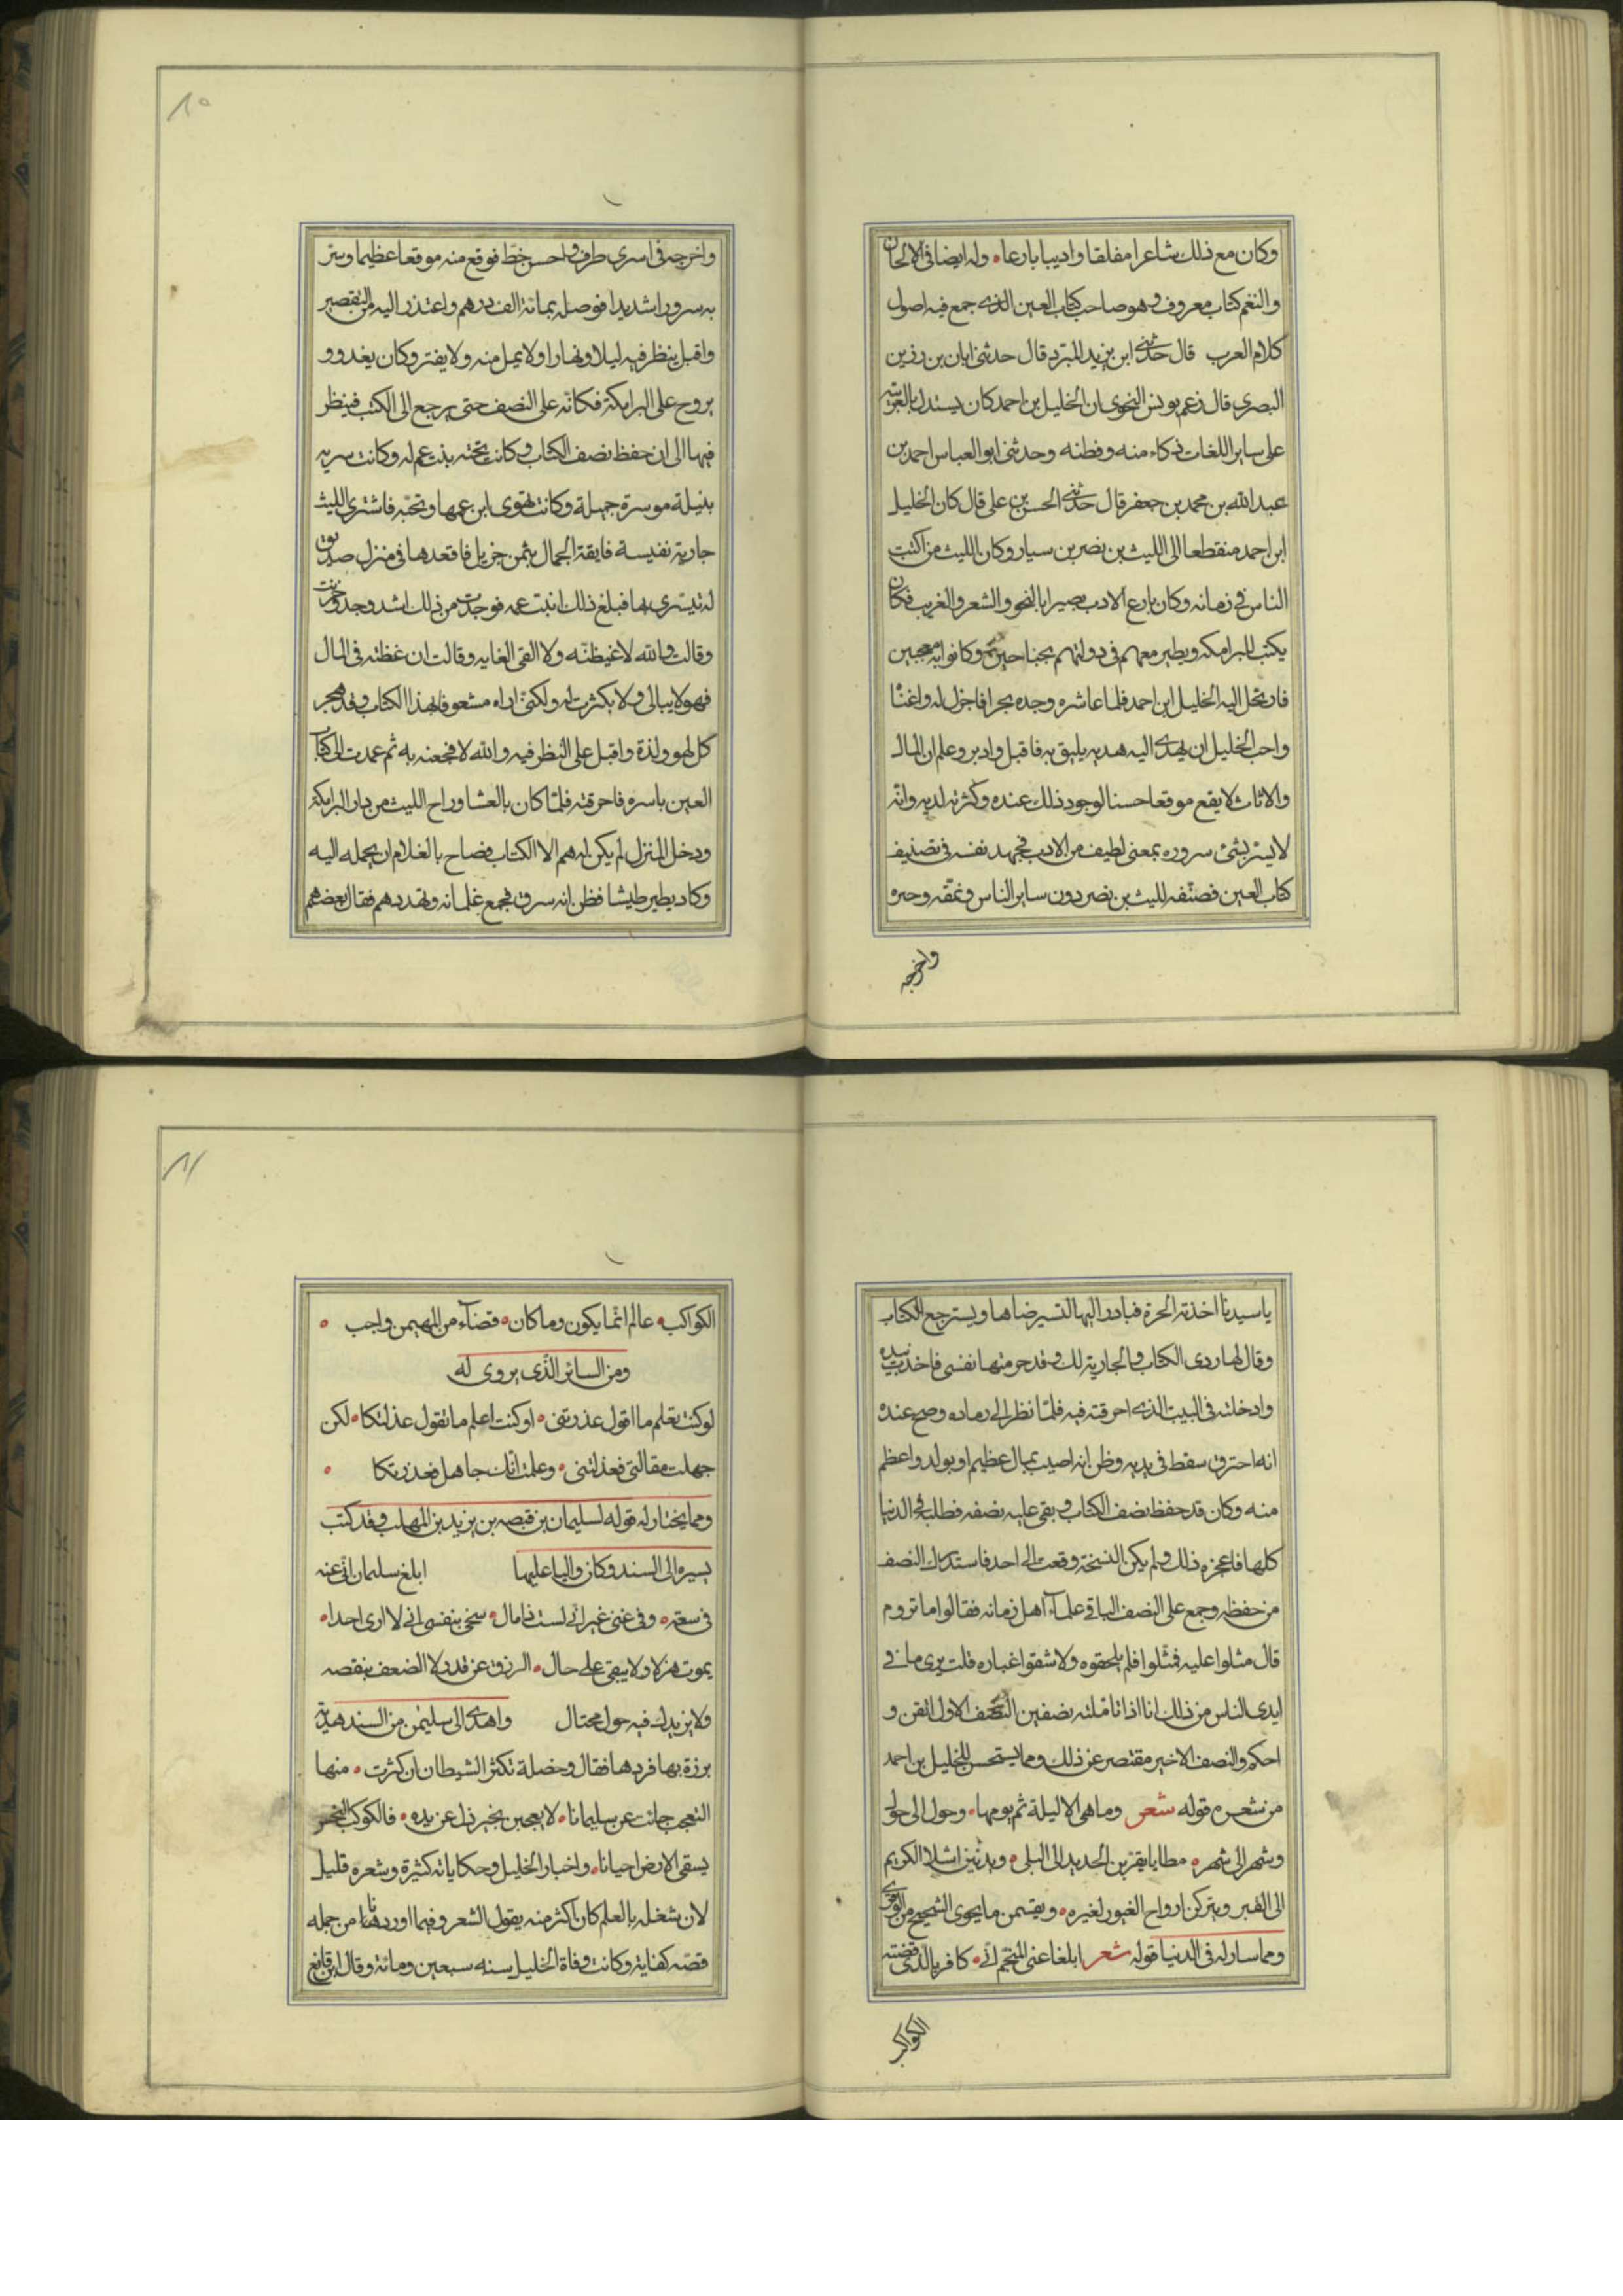 وكان مع ذلك شاعرا مفلقا واديبا بارعا ه وله ايضا في الالحان
والنغم كتاب معروف وهو صاحب كتاب العين الذى جمع فيه اصول
كلام العرب قال حدثنى ابن يزيد المبرد قال حدثنى ابان بن رزين
البصرى قال زعم يونس النحوى ان الخليل بن احمد كان يستدل بالعربية
على ساير اللغات ذكاء منه وفطنه وحدثنى ابو العباس احمد بن
عبد الله بن محمد بن جعفر قال حدثنى الحسن بن على قال كان الخليل
ابن احمد منقطعا الى الليث بن نصر بن سيار وكان الليث من اكتب
الناس فى زمانه وكان بارع الادب بصيرا بالنحو والشعر والغريب فكان
يكتب للبرامكه ويطير معهم فى دولتهم بجناحين وكانوا به معجبين
فارتحل اليه الخليل ابن احمد فلما عاشره وجده بحرا فاجزل له واغناه
واحب الخليل ان يهدى اليه هديه يليق به فاقبل وادبر وعلم ان المال
والاثاث لا يقع موقعا حسنا لوجود ذلك عنده وكثرته لديه وانه
لا يستر بشئ سروره بمعنى لطيف من الادب فجهد نفسه فى تصنيف
كتاب العين فصنفه لليث بن نصر دون ساير الناس ونمقه وحبره
واخرجه
١٠
واخرجه فى اسرى طرف واحسن خط فوقع منه موقعا عظيما وسر
به سرورا شديدا فوصله بمائة الف درهم واعتذر اليه من التقصير
واقبل ينظر فيه ليلا ونهارا ولا يمل منه ولا يفتر وكان يغدو و
يروح على البرامكة فكانه على النصف حتى يرجع الى الكتب فينظر
فيها الى ان حفظ نصف الكتاب وكانت تحته بنت عم له وكانت سريه
بنيلة موسرة جميلة وكانت تهوى ابن عمها وتحبه فاشترى الليث
جارية نفيسة فايقة الجمال بثمن جزيل فاقعدها فى منزل صديق
له تيسرى بها فبلغ ذلك ابنت عمه فوجدت من ذلك اشد وجد وحزنت
وقالت والله لاغيظنه ولا القى الغايه وقالت ان غظته فى المال
فهو لا يبالى ولا يكثرت له ولكنى اراه مشعوفا بهذا الكتاب وقد هجر
كل لهو ولذة واقبل على النظر فيه والله لافجعنه به ثم عمدت الى كتاب
العين باسره فاحرقته فلما كان بالعشا وراح الليث من دار البرامكه
ودخل المنزل لم يكن له هم الا الكتاب فصاح بالغلام ان يحمله اليه
وكاد يطير طيشا فظن انه سرق فجمع غلمانه وتهددهم فقال بعضهم
يا سيدنا اخذته الحرة فبادر اليها لتسير ضاها ويسترجع الكتاب
وقال لها ردى الكتاب والجارية لك وقد حرمتها نفسى فاخذت بيده
وادخلته فى البيت الذى احرقته فيه فلما نظر الى رماده وصح عنده
انه احترق سقط فى يديه وظن انه اصيب بمال عظيم او بولد واعظم
منه وكان قد حفظ نصف الكتاب وبقى عليه نصفه فطلبه فى الدنيا
كلها فاعجزه ذلك ولم يكن النسخة وقعت الى احد فاستدرك النصف
من حفظه وجمع على النصف الباقى علماء اهل زمانه فقالوا ما تروم
قال مثلوا عليه فمثلوا فلم يلحقوه ولا شقوا غباره قلت يرى ما فى
ايدى الناس من ذلك انا اذا تاملته نصفين النصف الاول اتقن و
احكم والنصف الاخير مقتصر عن ذلك ومما يستحسن للخليل بن احمد
من شعره قوله شعر وما هى الا ليلة ثم يومها ه وحول الى حول
وشهر الى شهر ه مطايا يقربن الجديد الى البلى ه ويدنين اشلا الكريم
الى القبر ويتركن ارواح الغيور لغيره ه ويقسمن ما يحوى الشحيح من الوفر
ومما سار له فى الدنيا قوله شعر ابلغا عنى المنجم انى ه كافر بالذى قضته
الكواكب
١١
الكواكب ه عالم انما يكون وما كان ه قضاء من المهيمن واجب ه
ومن السائر الذى يروى له
لو كنت تعلم ما اقول عذرتنى ه او كنت اعلم ما تقول عذلتكا ه لكن
جهلت مقالتى فعذلتنى ه وعلمت انك جاهل فعذرتكا ه
ومما يختار له قوله لسليمان بن قبصه بن يزيد بن المهلب وقد كتب
يسيره الى السند وكان واليا عليها ابلغ سليمان انى عنه
فى سعة ه وفى غنى غير انى لست ذا مال ه سخى بنفسى انى لا ارى احدا ه
يموت هزلا ولا يبقى على حال ه الرزق عن قدر لا الضعف ينقصه
ولا يزيدك فيه حول محتال واهدى الى سليمن من السند هدية
برزة بها فردها فقال وخصلة تكثر الشيطان ان كثرت ه منها
التعجب جائت عن سليمانا ه لا تعجبن بخير زل عن يده ه فالكوكب النحس
يسقى الارض احيانا ه واخبار الخليل وحكاياته كثيرة وشعره قليل
لان شغله بالعلم كان اكثر منه يقول الشعر وفيما اوردناه من جمله
قصته كفاية وكانت وفاة الخليل سنه سبعين ومائة وقال ابن قانع